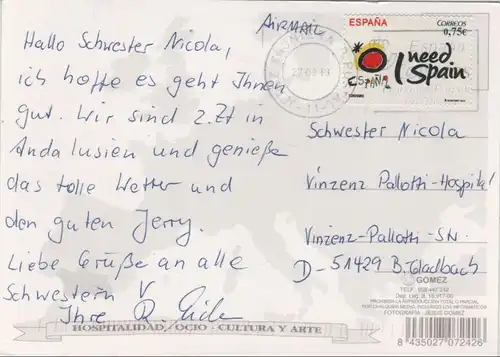 Hallo Schwester Nicola,
ich hoffe es geht Ihnen
gut. Wir sind z.Zt in
Andalusien und genieße
das tolle Wetter und
den guten Jerry.
Liebe Grüße an alle
Schwestern
Ihre
AIRMAIL
ESPAÑA
CORREOS
0,75€
I need
Spain
ESPAÑA
Schwester Nicola
Vinzenz Pallotti-Hospital
Vinzenz-Pallotti-Str.
D-51429 B.Gladbach
GOMEZ
FOTOGRAFIA - JESUS GOMEZ
HOSPITALIDAD / OCIO - CULTURA Y ARTE
8 435027 072426